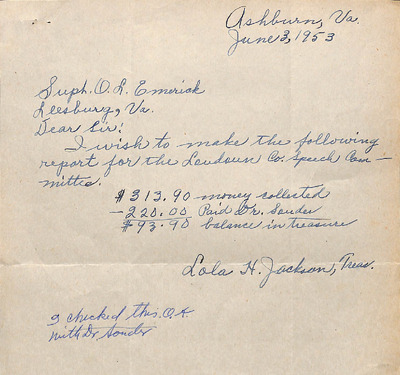 Ashburn, Va.
June 3, 1953
Supt. O. L. Emerick
Leesburg, Va.
Dear Sir:
I wish to make the following
report for the Loudoun Co. Speech Com-
mittee.
$313.90 money collected
-220.00 Paid Dr. Souder
$93.90 balance in treasure
Lola H. Jackson, Treas.
I checked this O.K.
with Dr Souder